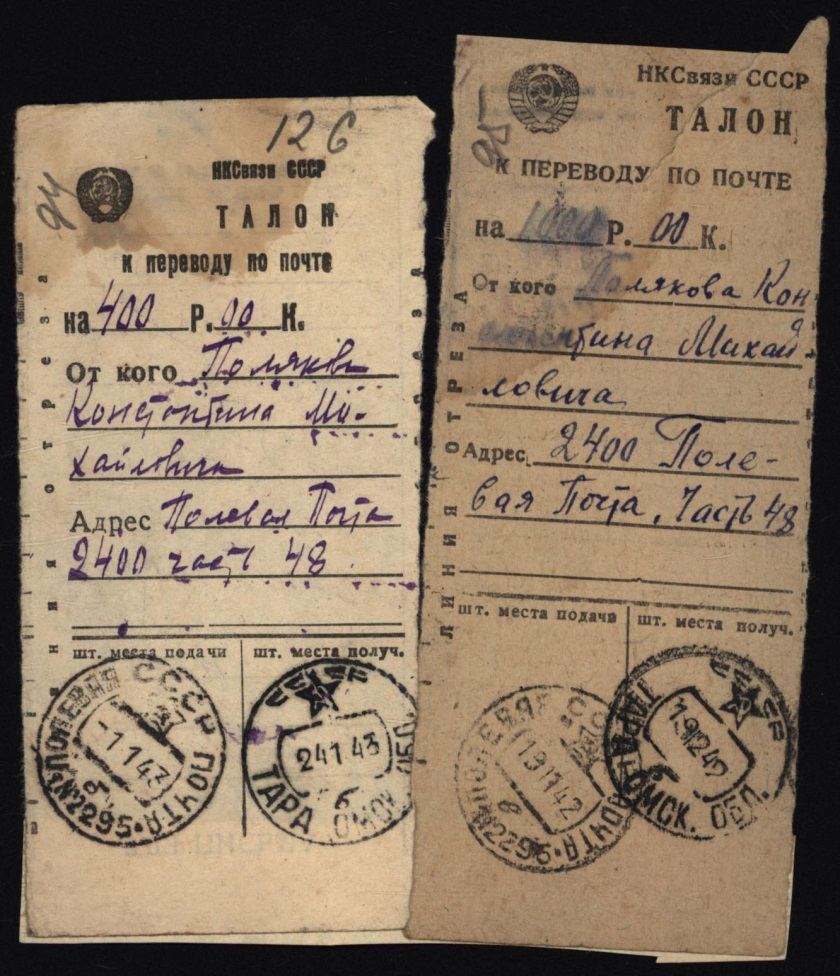 126
94
НКСвязи СССР
ТАЛОН
к переводу по почте
на 400 Р. 00 К.
От кого Полякова
Константина Ми-
хайловича
Адрес Полевая Почта
2400 часть 48
шт. места подачи
шт. места получ.
ПОЛЕВАЯ СССР ПОЧТА
-1 1 43
в
№2295
СССР
24 1 43
б
ТАРА ОМСК. ОБЛ.
ЛИНИЯ ОТРЕЗА
95
НКСвязи СССР
ТАЛОН
К ПЕРЕВОДУ ПО ПОЧТЕ
на 1000 Р. 00 К.
От кого Полякова Кон
стантина Михай
ловича
Адрес 2400 Поле-
вая Почта. Часть 48
шт. места подачи
шт. места получ.
ПОЛЕВАЯ ПОЧТА
19 11 42
в
№2295
СССР
19 12 42
б
ТАРА ОМСК. ОБЛ.
ЛИНИЯ ОТРЕЗА